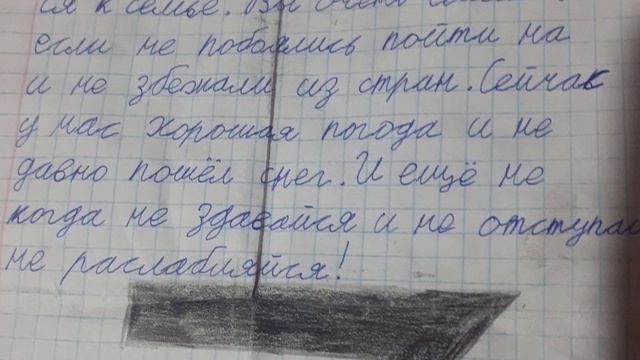 ся к семье. Вы очень
если не побоялись пойти на
и не збежали из стран. Сейчас
у нас хорошая погода и не
давно пошёл снег. И ещё не
когда не здавайся и не отступай
не раслабляйся!